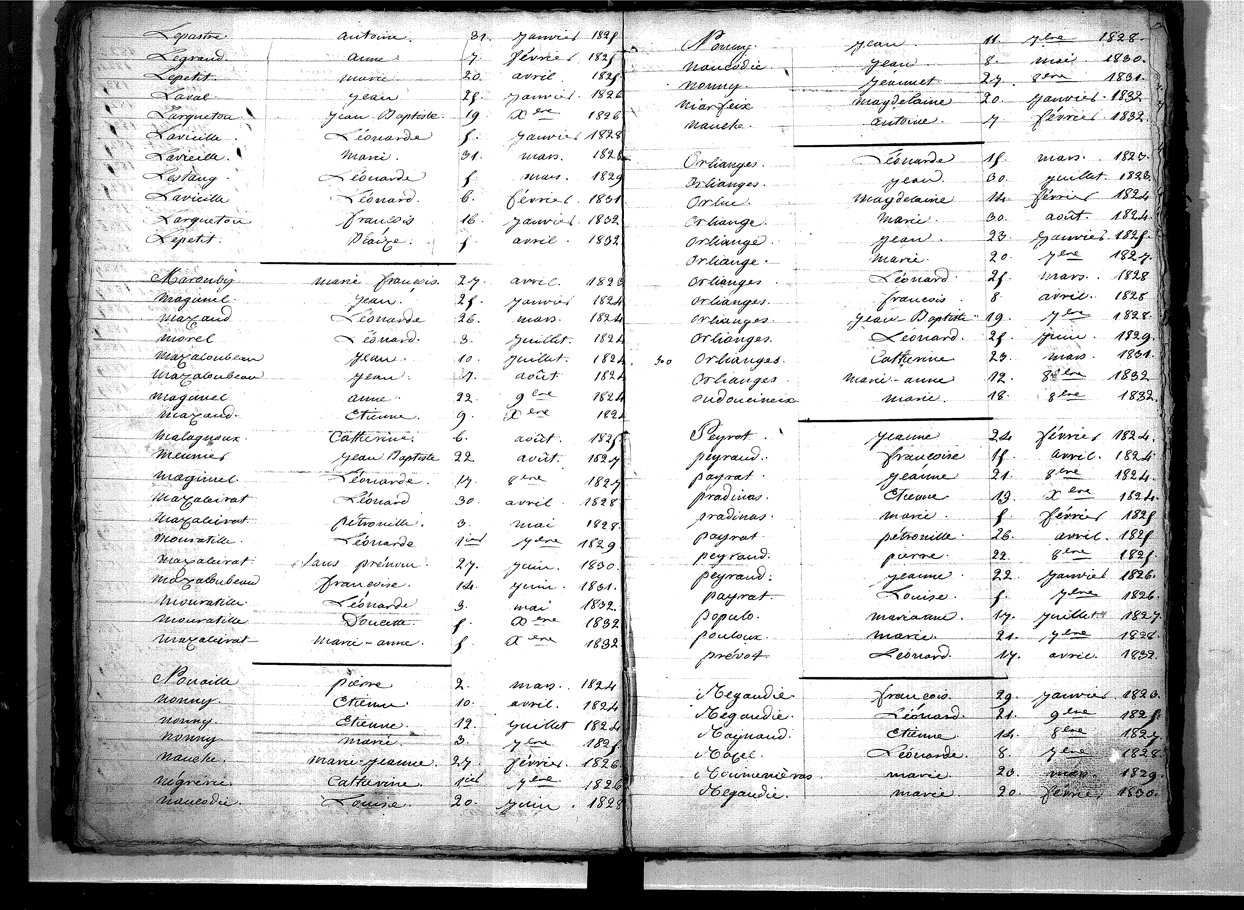 Lepastre antoine. 31. janvier 1825
Legrand. anne 7. février. 1825
Lepetit. marie 20. avril. 1825
Laval jean 25. janvier. 1826
Larqueton jean-Baptiste. 19. Xbre 1826
Lavieille Léonarde 5. janvier 1828
Lavieille. marie. 31. mars. 1828
Lestang. Léonarde 5. mars. 1829
Lavieille Léonard. 6. février. 1831
Larqueton françois 16. janvier 1832
Lepetit. Blaize. 5. avril. 1832
marie françois. 27. avril. 1823
magimel jean. 25. janvier 1824
mazaud Léonarde 26. mars. 1824
morel Léonard. 3. juillet. 1824
mazaloubeau jean. 10. juillet. 1824
mazaloubeau jean. 7. août 1824
magimel anne 22. 9bre 1824
mazaud. Etienne 9. Xbre 1824
malagnoux Catherine. 6. août. 1825
meunier jean Baptiste 22 août. 1827
magimel Léonarde. 17. 8bre 1827
mazaleirat Léonard 30. avril. 1828
mazaleirat. pétronille. 3. mai 1828.
mouratille. Léonarde 1ier 7bre 1829.
mazaleirat sans prénom. 27. juin. 1830.
mazaloubeau françoise. 14. juin. 1831.
mouratille Léonarde 3. mai 1832.
mouratille Doucette 5. Xbre 1832
mazaleirat marie-anne. 5. Xbre 1832.
Nouaille pierre 2. mars. 1824
nonny Etienne 10. avril. 1824
nonny Etienne. 12. juillet 1824
nonny marie. 3. 7bre 1825
nauche. marie-jeanne. 27. février. 1826.
négrerie Catherine. 1ier 7bre 1826
naucodie. Louise. 20. juin. 1828
Nonny. jean. 11. 7bre 1828.
naucodie jean 8. mai. 1830.
nonny. jeannet 27. 8bre 1831.
magdelaine 20. janvier. 1832
nauche antoine. 7. février. 1832.
Orlianges. Léonarde 15. mars. 1823.
Orlianges. jean. 30. juillet. 1823.
Orlue. magdelaine 14. février 1824
Orliange. Marie 30. août. 1824.
Orliange. jean. 23. janvier. 1825.
Orliange. marie. 20. 7bre 1827.
Orlianges. Léonard 25. mars. 1828
Orlianges. françois. 8. avril. 1828
Orlianges. jean-Baptiste 19. 7bre 1828.
Orlianges. Léonard. 25. juin. 1829.
30 Orlianges. Catherine 23. mars. 1831.
Orlianges. marie-anne 12. 8bre 1832
marie. 18. 8bre 1832.
Peyrat. jeanne 24 février. 1824.
peyraud. françoise 15. avril. 1824
payrat. jeanne 21. 8bre 1824.
pradinas. Etienne 19. Xbre 1824.
pradinas. marie. 5. février 1825
payrat pétronille. 26. avril. 1825
peyraud. pierre. 22. 8bre 1825
peyraud. jeanne. 22. janvier 1826.
payrat. Louise. 5. 7bre 1826.
Populo. marianne 17. juillet 1827.
pouloux. marie. 21. 7bre 1828.
prévot Léonard. 17. avril. 1832.
Regaudie. françois. 29. janvier 1823.
Regaudie. Léonard. 21. 9bre 1825.
Raynaud. Etienne 14. 8bre 1827.
Razel. Léonarde 8. 7bre 1828.
marie. 23. mars. 1829.
Regaudie. marie 20. février 1830.